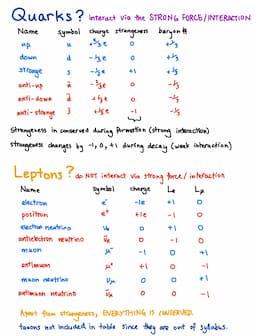 Quarks? interact via the STRONG FORCE/INTERACTION
Name symbol charge strangeness baryon #
up u +⅔e 0 +⅓
down d -⅓e 0 +⅓
strange s -⅓e +1 +⅓
anti-up ū -⅔e 0 -⅓
anti-down d̄ +⅓e 0 -⅓
anti-stange s̄ +⅓e -1 -⅓
Strangeness is conserved during formation (strong interaction)
strangeness changes by -1, 0, +1 during decay (weak interaction)
Leptons? do NOT interact via strong force/interaction
Name symbol charge Le Lμ
electron e⁻ -1e +1 0
positron e⁺ +1e -1 0
electron neutrino νe 0 +1 0
antielectron neutrino ν̄e 0 -1 0
muon μ⁻ -1 0 +1
antimuon μ⁺ +1 0 -1
muon neutrino νμ 0 0 +1
antimuon neutrino ν̄μ 0 0 -1
Apart from strangeness, EVERYTHING IS CONSERVED
tauons not included in table since they are out of syllabus.